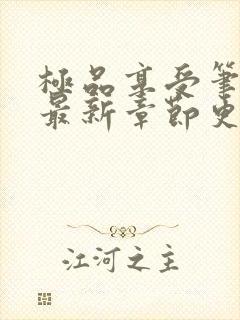 極品享受筆
最新章節史
江河之主